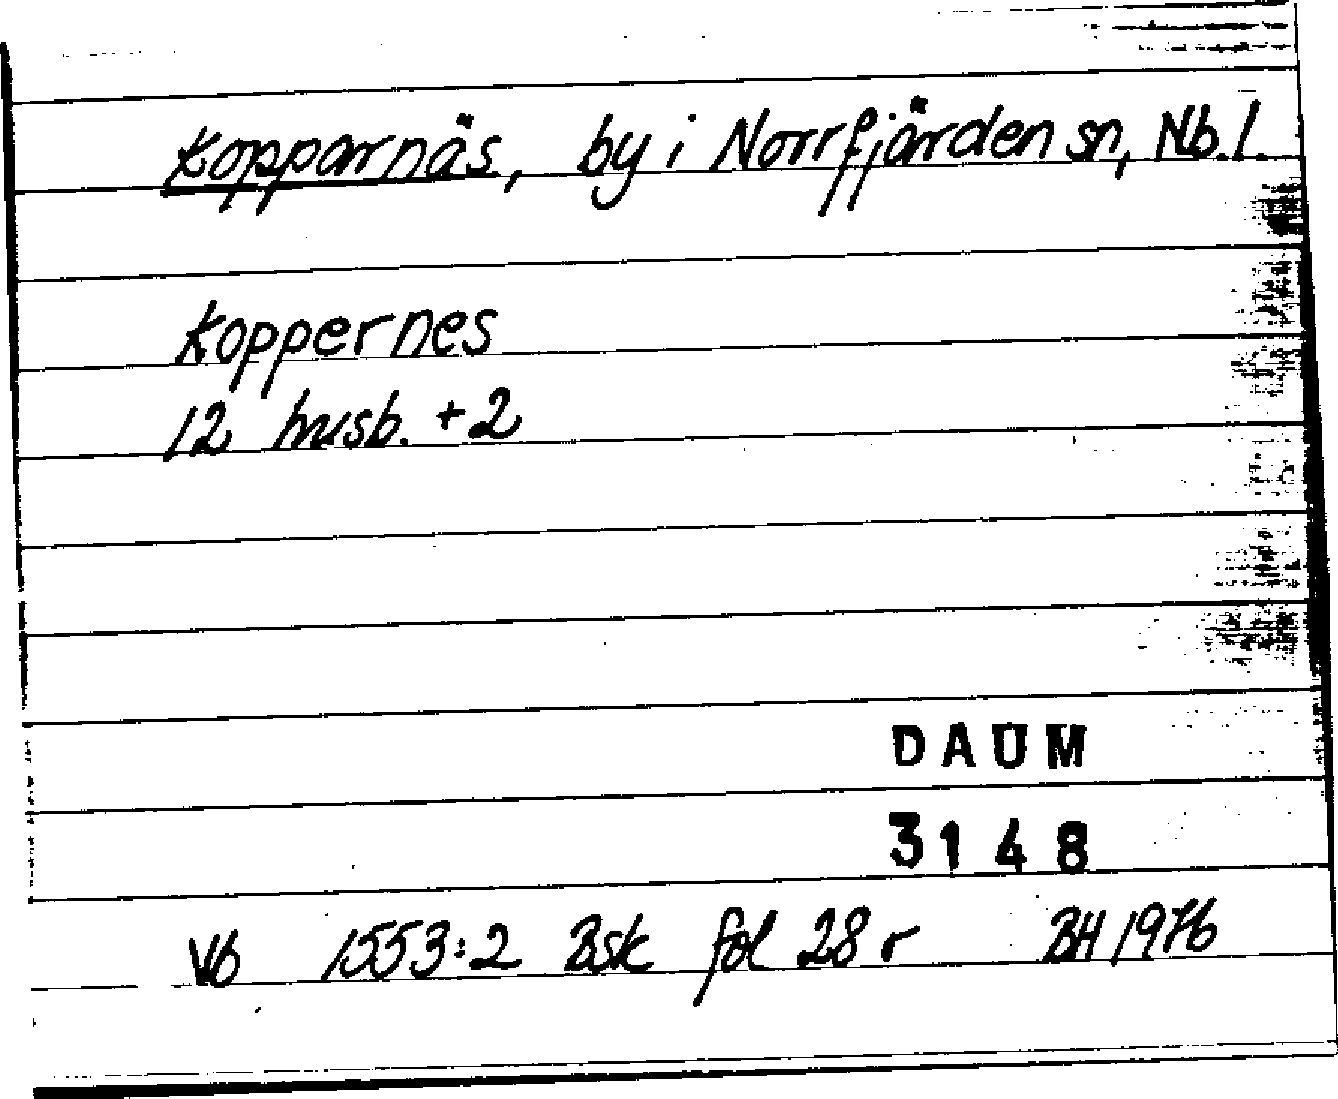 Kopparnäs, by i Norrfjärden sn, Nb.l.
Koppernes
12 husb. + 2
DAUM
3148
Vb 1553:2 Bsk fol 28 r BH 1976